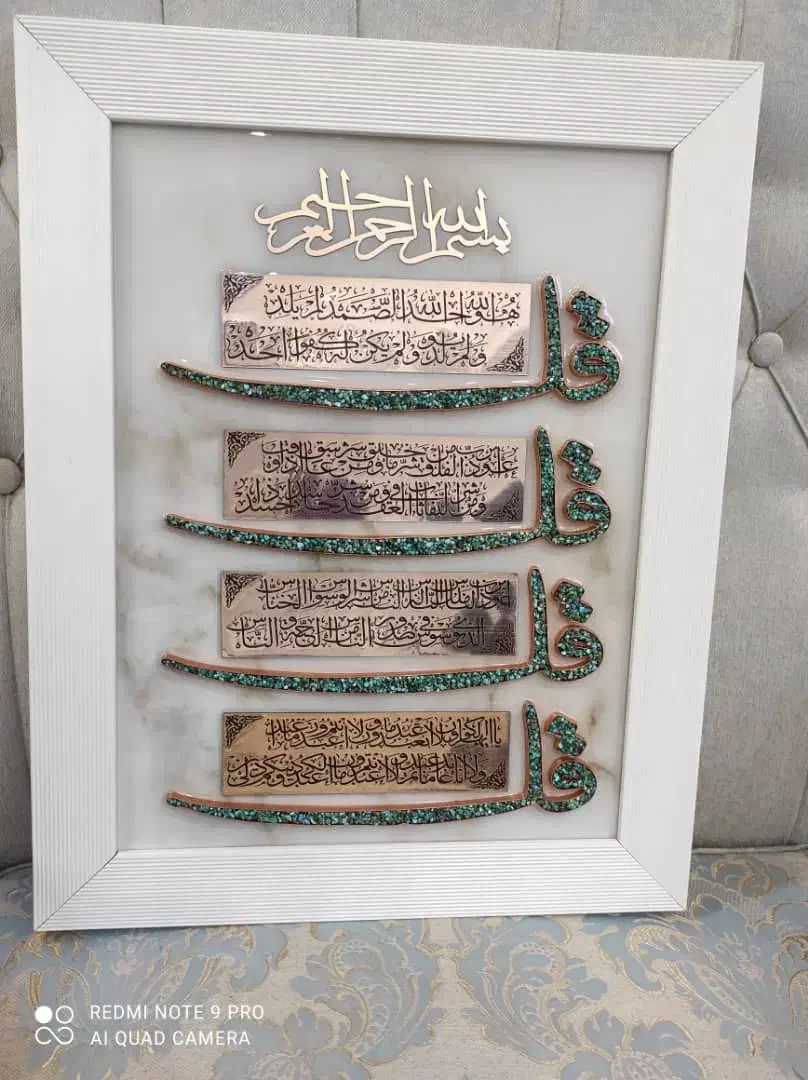 بسم الله الرحمن الرحيم
قل
هو الله احد الله الصمد لم يلد
ولم يولد ولم يكن له كفوا احد
قل
اعوذ برب الفلق من شر ما خلق ومن شر غاسق اذا وقب
ومن شر النفاثات في العقد ومن شر حاسد اذا حسد
قل
اعوذ برب الناس ملك الناس اله الناس من شر الوسواس الخناس
الذي يوسوس في صدور الناس من الجنة و الناس
قل
يا ايها الكافرون لا اعبد ما تعبدون ولا انتم عابدون ما اعبد
ولا انا عابد ما عبدتم ولا انتم عابدون ما اعبد لكم دينكم ولي دين
REDMI NOTE 9 PRO
AI QUAD CAMERA